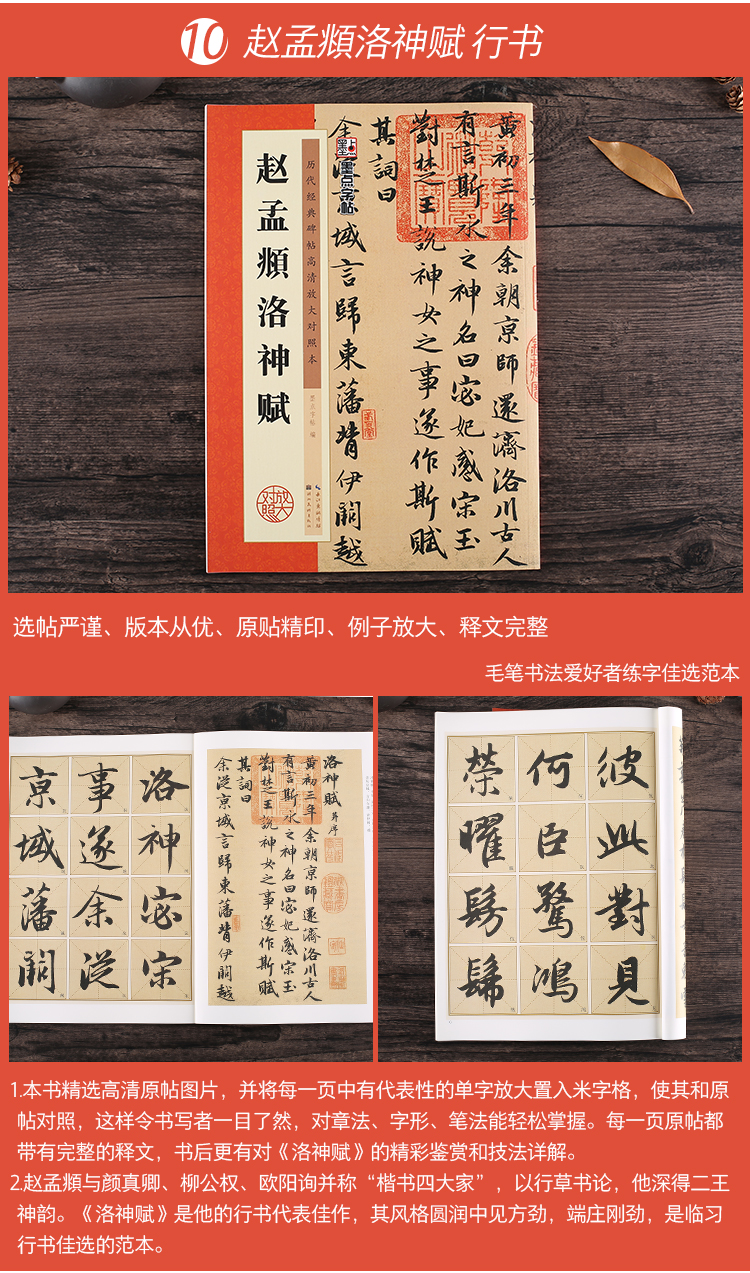 10 赵孟頫洛神赋 行书
赵孟頫洛神赋
历代经典碑帖高清放大对照本
墨点字帖 编
放大对照
墨点字帖
黄初三年余朝京師還濟洛川古人
有言斯水之神名曰宓妃感宋玉
對楚王說神女之事遂作斯賦
其詞曰
余從京域言歸東藩背伊闕越
选帖严谨、版本从优、原贴精印、例子放大、释文完整
毛笔书法爱好者练字佳选范本
洛神宓宋
事遂余從
京域藩闕
洛神賦 并序
黄初三年余朝京師還濟洛川古人
有言斯水之神名曰宓妃感宋玉
對楚王說神女之事遂作斯賦
其詞曰
余從京域言歸東藩背伊闕越
彼此對見
何臣驚鴻
榮曜髣髴
1.本书精选高清原帖图片，并将每一页中有代表性的单字放大置入米字格，使其和原
帖对照，这样令书写者一目了然，对章法、字形、笔法能轻松掌握。每一页原帖都
带有完整的释文，书后更有对《洛神赋》的精彩鉴赏和技法详解。
2.赵孟頫与颜真卿、柳公权、欧阳询并称“楷书四大家”，以行草书论，他深得二王
神韵。《洛神赋》是他的行书代表佳作，其风格圆润中见方劲，端庄刚劲，是临习
行书佳选的范本。